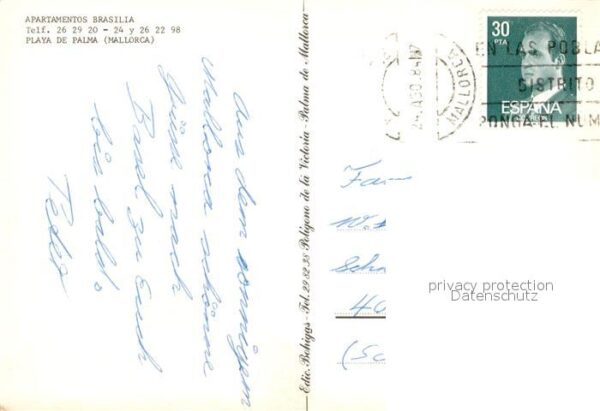 APARTAMENTOS BRASILIA
Telf. 26 29 20 - 24 y 26 22 98
PLAYA DE PALMA (MALLORCA)
Aus dem sonnigen
Mallorca schöne
Grüsse nach
Basel zu Euch
bis bald.
Edic. Bohigas - Tel. 29.82.38 Polígono de la Victoria - Palma de Mallorca
30
PTA
ESPAÑA
CORREOS
MALLORCA
EN LAS POBLA
DISTRITO
PONGA EL NUM
Fam
W.
Sch
40
(Sc
privacy protection
Datenschutz